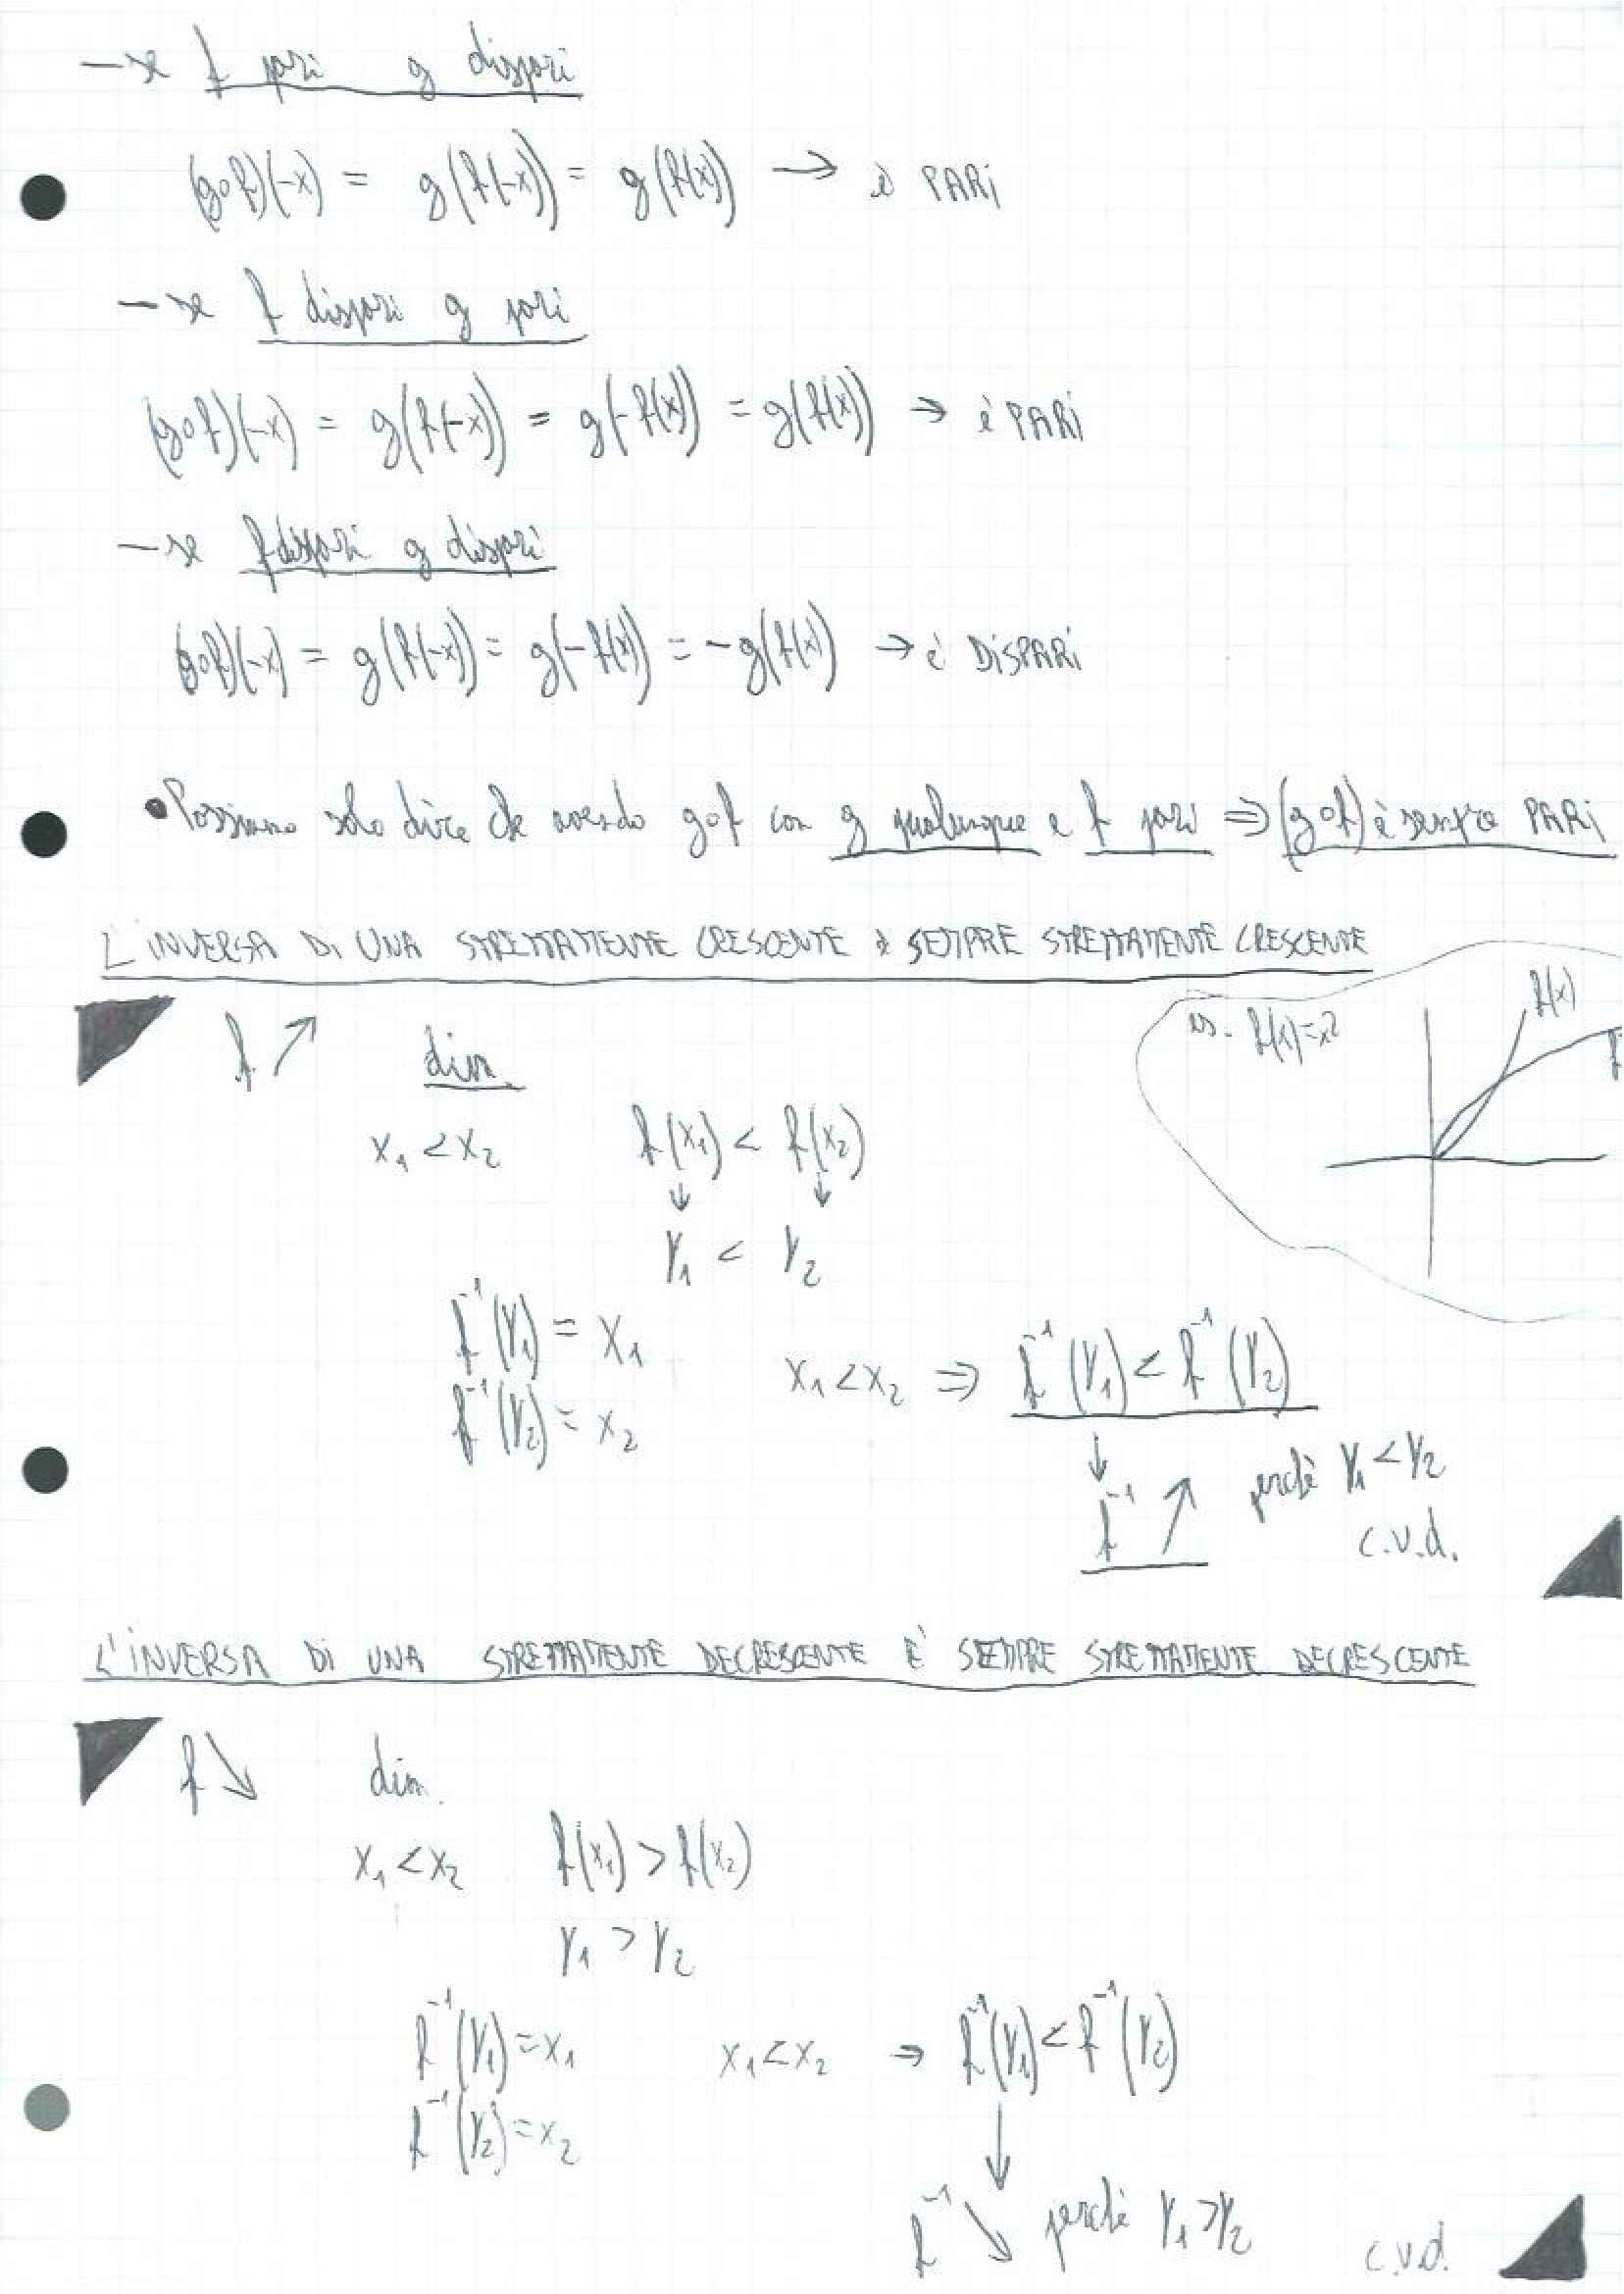 — se f pari g dispari
(g∘f)(-x) = g(f(-x)) = g(f(x)) → è PARI
— se f dispari g pari
(g∘f)(-x) = g(f(-x)) = g(-f(x)) = g(f(x)) → è PARI
— se f dispari g dispari
(g∘f)(-x) = g(f(-x)) = g(-f(x)) = -g(f(x)) → è DISPARI
• Possiamo solo dire che avendo g∘f con g qualunque e f pari ⇒ (g∘f) è sempre PARI
L'INVERSA DI UNA STRETTAMENTE CRESCENTE è SEMPRE STRETTAMENTE CRESCENTE
es. f(x)=x² f(x)
f ↗ dim.
x₁ < x₂ f(x₁) < f(x₂)
↓ ↓
y₁ < y₂
f⁻¹(y₁) = x₁
f⁻¹(y₂) = x₂
x₁ < x₂ ⇒ f⁻¹(y₁) < f⁻¹(y₂)
↓
f⁻¹ ↗ perchè y₁ < y₂
c.v.d.
L'INVERSA DI UNA STRETTAMENTE DECRESCENTE E' SEMPRE STRETTAMENTE DECRESCENTE
f ↘ dim.
x₁ < x₂ f(x₁) > f(x₂)
y₁ > y₂
f⁻¹(y₁) = x₁ x₁ < x₂ ⇒ f⁻¹(y₁) < f⁻¹(y₂)
f⁻¹(y₂) = x₂
↓
f⁻¹ ↘ perchè y₁ > y₂ c.v.d.